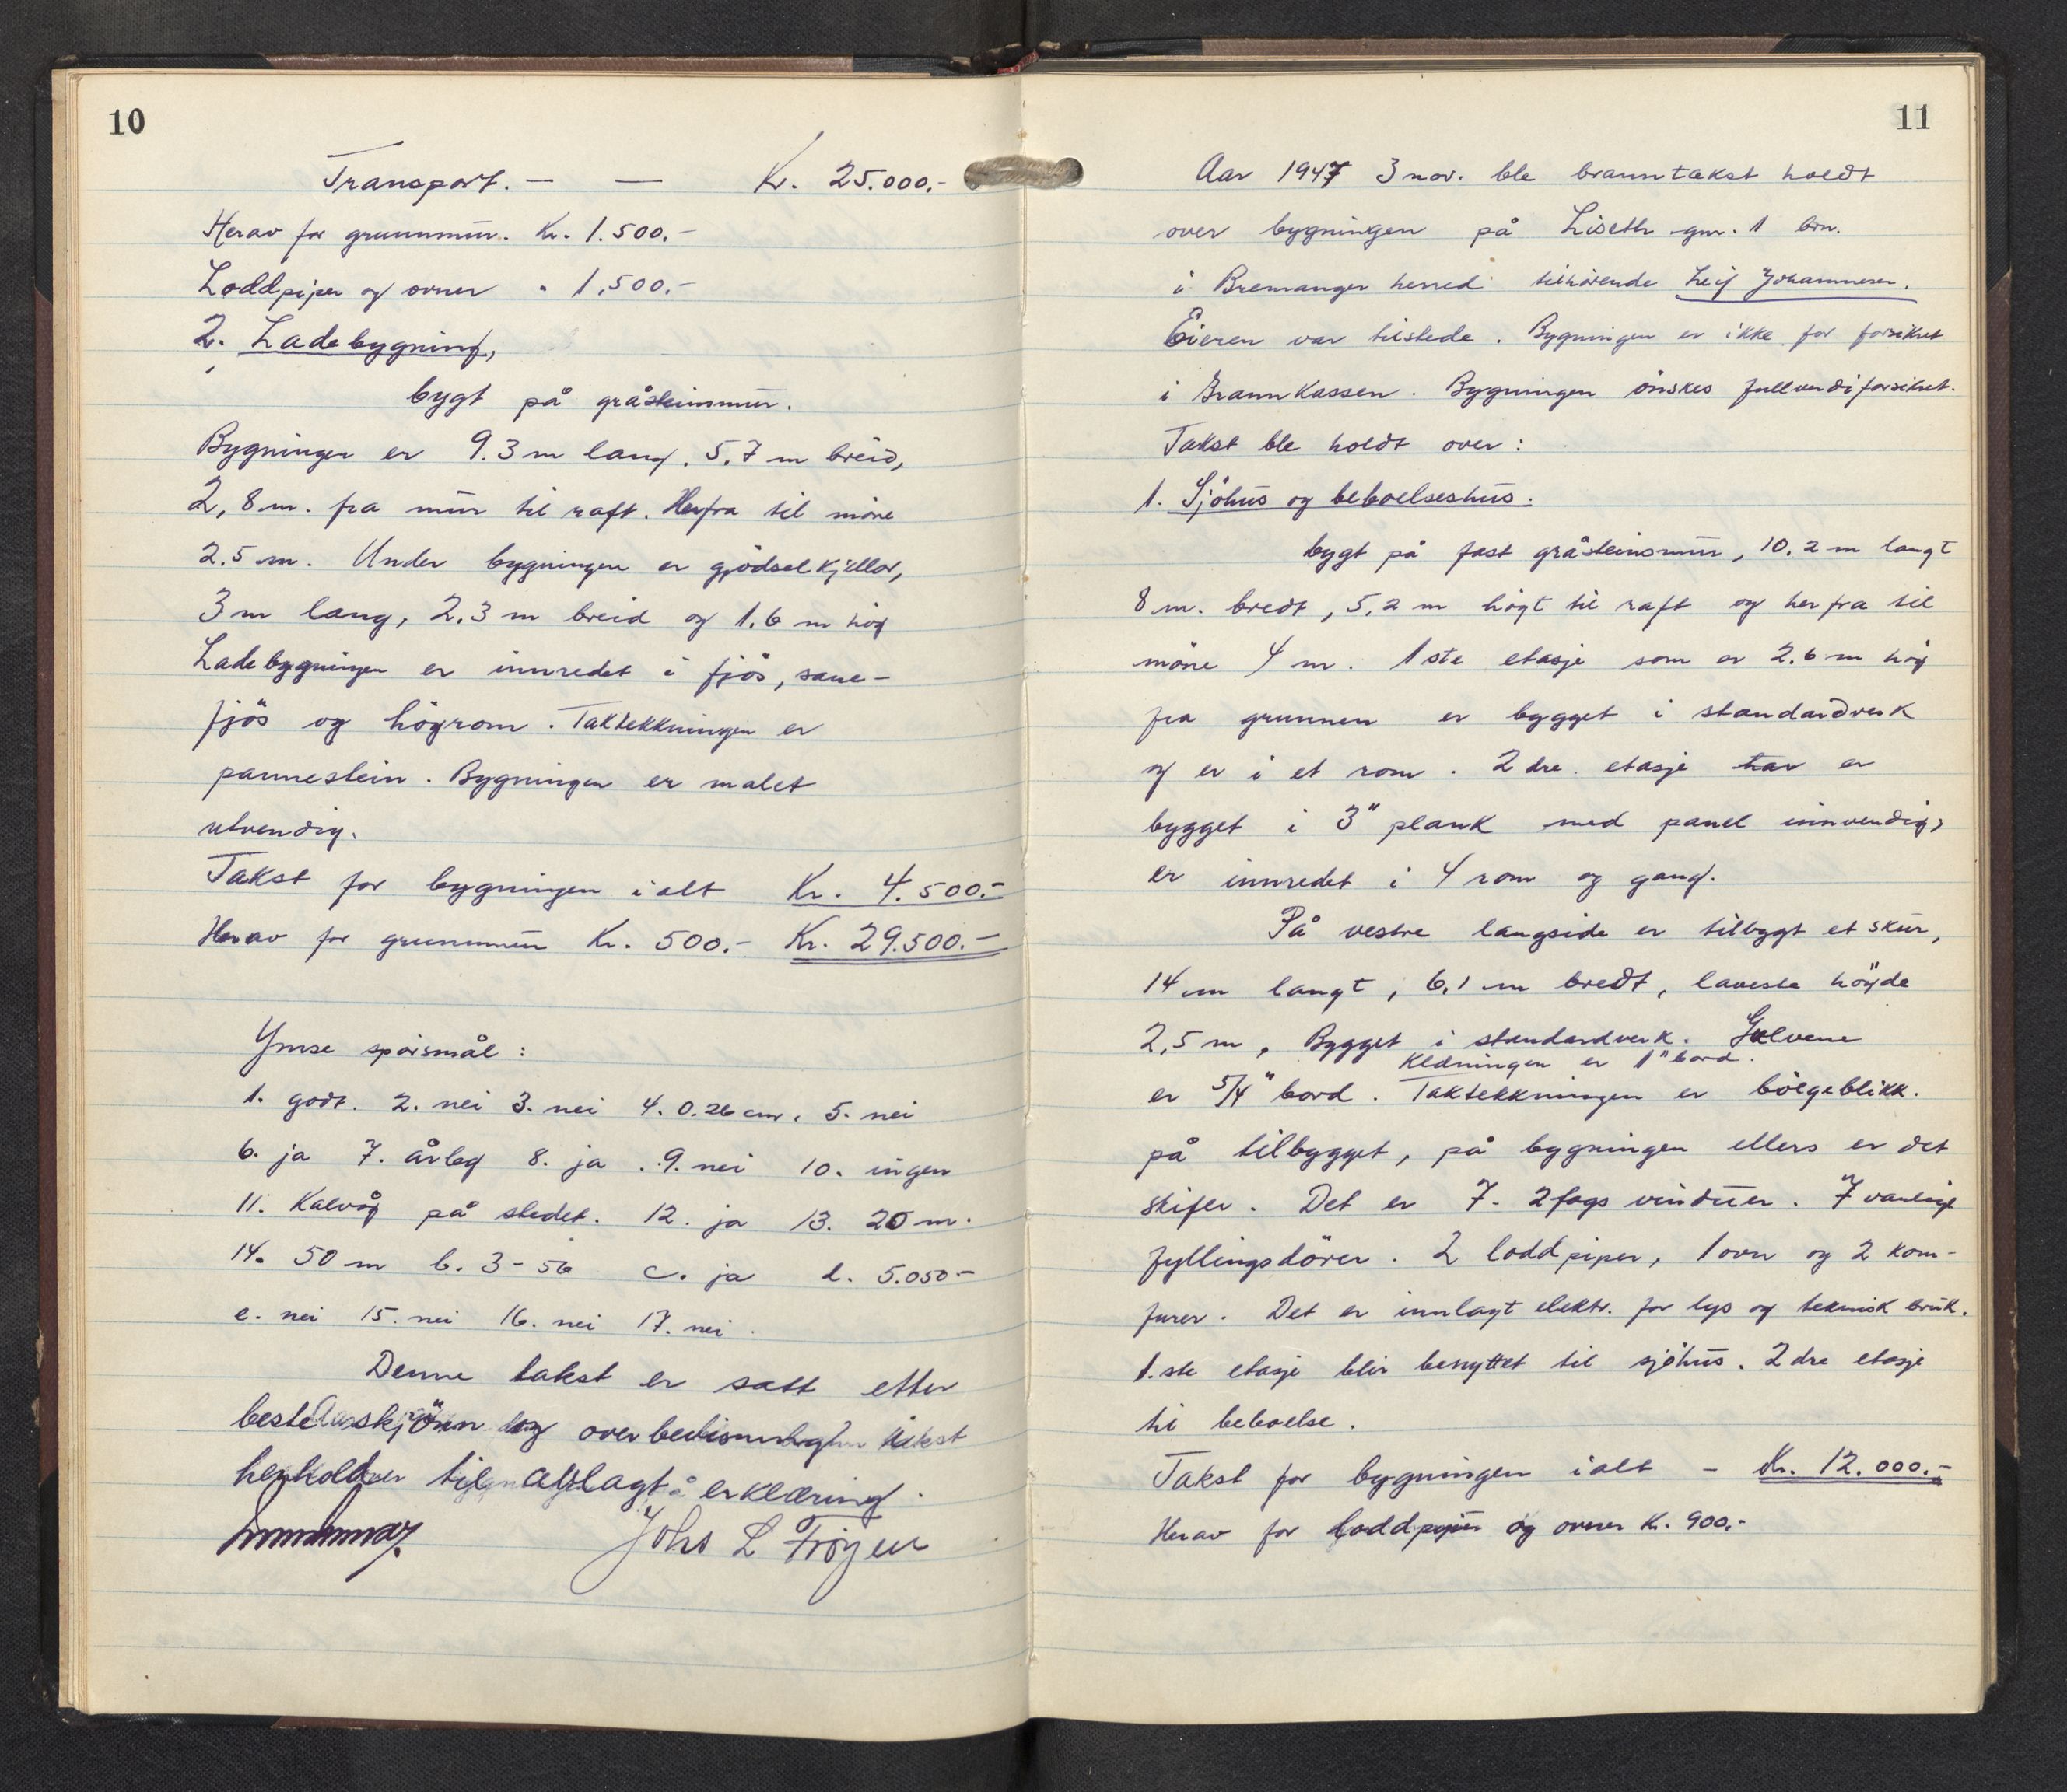 10
Transport. — — Kr. 25.000.-
Herav for grunnmur. Kr. 1.500.-
Loddpiper og ovner " 1.500.-
2. Ladebygning,
bygt på gråsteinsmur.
Bygningen er 9.3 m lang. 5.7 m breid,
2,8 m. fra mur til raft. Herfra til möne
2.5 m. Under bygningen er gjödselkjellar,
3 m lang, 2.3 m breid og 1.6 m hög
Ladebygningen er innredet i fjös, saue-
fjös og högrom. Taktekkningen er
pannestein. Bygningen er malet
utvendig.
Takst for bygningen ialt Kr. 4.500.-
Herav for grunnmur Kr. 500.- Kr. 29.500.-
Ymse spörsmål :
1. godt. 2. nei 3. nei 4. 0.26 cm. 5. nei
6. ja 7. årleg 8. ja . 9. nei 10. ingen
11. Kalvåg på stedet. 12. ja 13. 20 m.
14. 50 m b. 3-56 c. ja d. 5.050-
e. nei 15. nei 16. nei 17. nei.
Denne takst er satt etter
beste skjönn og overbevisning
henhold til avlagt erklæring.
Johs L Frøyen
11
Aar 1947 3 nov. ble branntakst holdt
over bygningen på Liseth gnr. 1 bn.
i Bremanger herred tilhörende Leif Johannesen.
Eieren var tilstede. Bygningen er ikke för forsikret
i Brannkassen. Bygningen önskes fullverdiforsikret.
Takst ble holdt over :
1. Sjöhus og beboelseshus.
bygt på fast gråsteinsmur, 10.2 m langt
8 m. bredt, 5,2 m högt til raft og herfra til
möne 4 m. 1ste etasje som er 2.6 m hög
fra grunnen er bygget i standardverk
og er i et rom. 2dre. etasje har er
bygget i 3" plank med panel innvendig,
er innredet i 4 rom og gang.
På vestre langside er tilbygt et skur,
14 m langt, 6,1 m bredt, laveste höyde
2,5 m, Bygget i standardverk. Golvene
Kledningen er 1" bord.
er 5/4" bord. Taktekkningen er bölgeblikk.
på tilbygget, på bygningen ellers er det
skifer. Det er 7- 2fags vinduer. 7 vanleig
fyllingsdörer. 2 loddpiper, 1 ovn og 2 kom-
furer. Det er innlagt elektr. for lys og teknisk bruk.
1.ste etasje blir benyttet til sjöhus. 2dre etasje
til beboelse.
Takst for bygningen ialt - Kr. 12.000.-
Herav for loddpiper og ovner Kr. 900.-